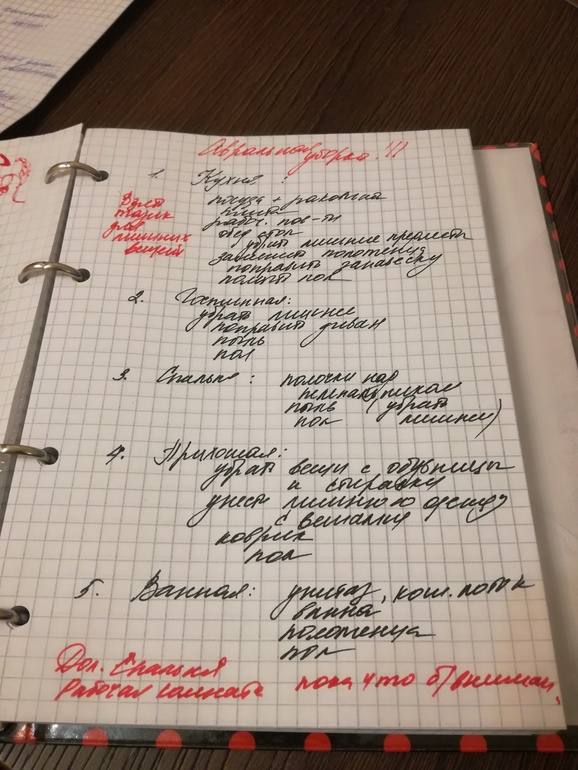 Авральная уборка!!!
1. Кухня:
посуда + раковина
плита
рабоч. пов-ти
обед стол
убрать лишние предметы
заменить полотенца
поправить занавеску
помыть пол
Взять
тазик
для
лишних
вещей
2. Гостинная:
убрать лишнее
поправить диван
пыль
пол
3. Спальня: полочки над
пеленальником
пыль (убрать
пол лишнее)
4. Прихожая:
убрать вещи с обувницы
и стиралку
унести лишнюю одежду
с вешалки
коврик
пол
5. Ванная: унитаз, кош. лоток
ванна
полотенца
пол
Доп. Спальня
Рабочая комната пока что б/вниман.